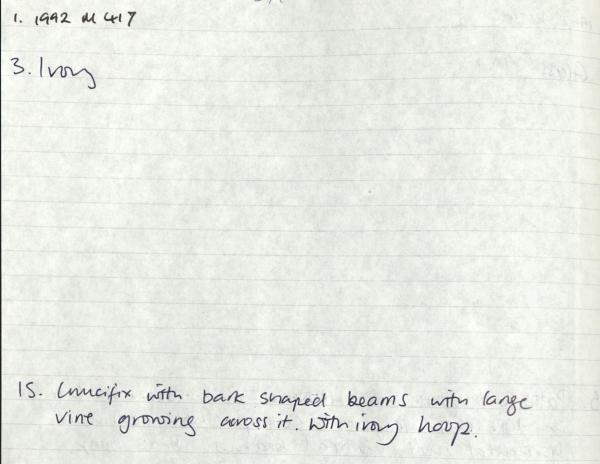 1. 1992 M 417
3. Ivory
15. Crucifix with bark shaped beams with large
vine growing across it. With ivory hoop.